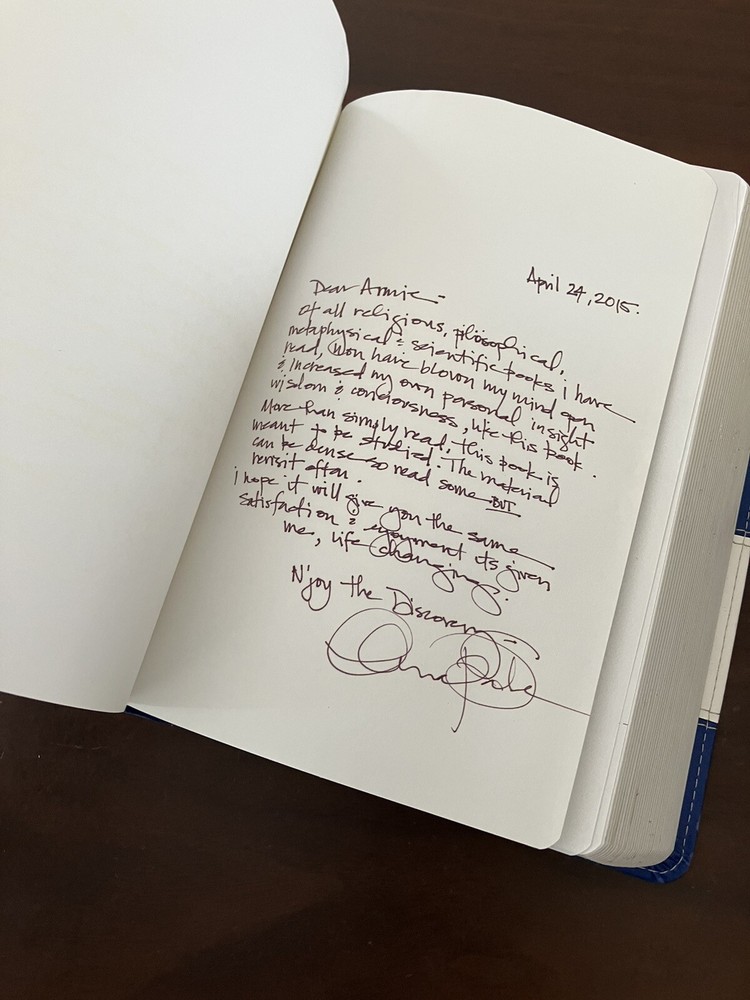 April 24, 2015.
Dear Armie -
Of all religious, pilosophical,
metaphysical & scientific books i have
read, Non have blown my mind open
& increased my own personal insight
wisdom & conciousness, like this book.
More than simply read, this book is
meant to be studied. The material
can be dense so read some BUT
revisit often.
i hope it will give you the same
satisfaction & enjoyment its given
me, life changing.
N'joy the Discovery